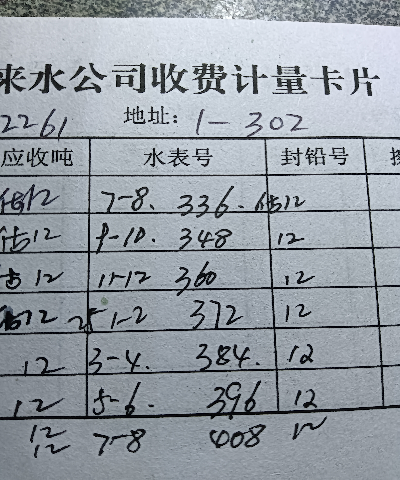 来水公司收费计量卡片
2261 地址: 1-302
应收吨 水表号 封铅号
估12 7-8. 336. 估12
估12 9-10. 348 12
估12 11-12 360 12
估12 25 1-2 372 12
12 3-4. 384. 12
12 5-6. 396 12
12 12 7-8 408 12